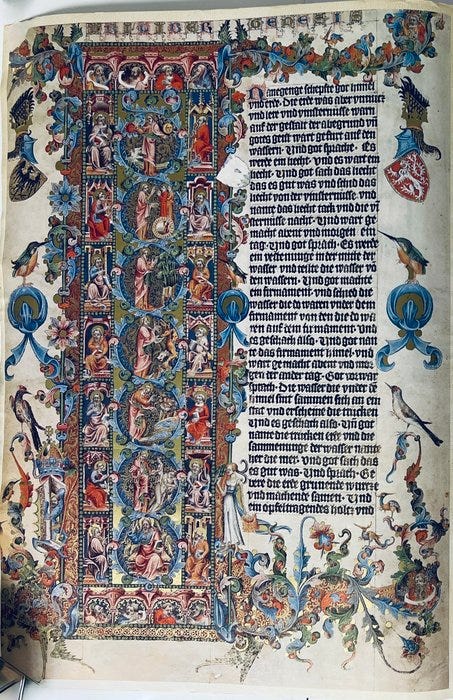 LIBER GENESIS
Nanegenge scheppfte got himel
vnd erde · Die erde was aber vnnucz
vnd lere vnd vinsternisse warn
auf der gestalt der abegrund vn
gotes geist wart gefurt auf den
wassern · Vnd got sprach · Es
werde ein liecht · vnd es wart ein
liecht · Vnd got sach das liecht
das es gut was vnd schied das
liecht von der vinsternisse · vnd
nante das liecht tack vnd die vi
sternisse nacht · Vnd wart ge
macht abent vnd morgen ein
tag · Vnd got sprach · Es werde
ein vestenunge in der mitte der
wasser vnd teilte die wasser vo
den wassern · Vnd got machte
ein firmament · vnd schied die
wasser die do waren vnder dem
firmament von den die do wa
ren auf dem firmament · Vnd
es geschach also · Vnd got nan
te das firmament himel · vnd
wart gemacht abent vnd mor
gen der ander tag · Got vorwar
sprach · Die wasser die vnder de
himel sint sammen sich an ein
stat vnd erscheine die trucken
Vnd es geschach also · Vn got
name die trucken erde vnd die
sammenunge der wasser nante
her die mer · vnd got sach das
es gut was · Vnd sprach · Ge
bere die erde grunende wurcze
vnd machende samen · Vnd
ein opfeltragendes holtz vnd